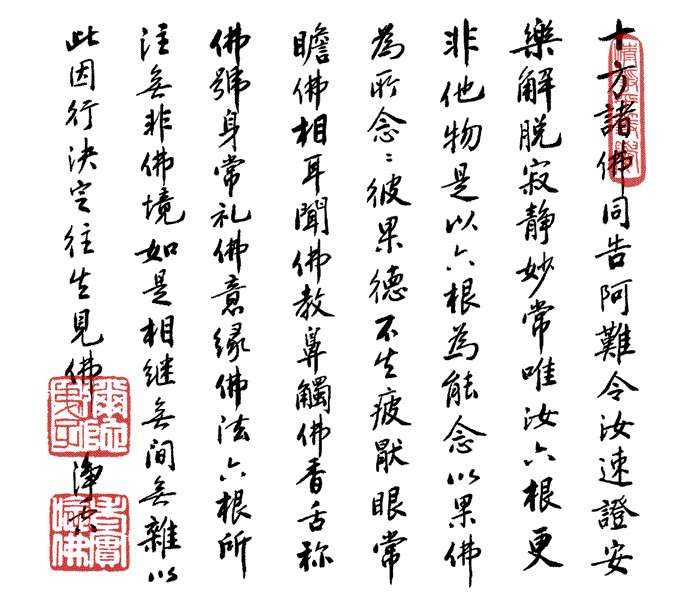 十方諸佛同告阿難令汝速證安
樂解脫寂靜妙常唯汝六根更
非他物是以六根為能念以果佛
為所念念彼果德不生疲厭眼常
瞻佛相耳聞佛教鼻觸佛香舌称
佛號身常礼佛意緣佛法六根所
注無非佛境如是相継無间無雜以
此因行決定往生見佛
淨雲
老實
念佛